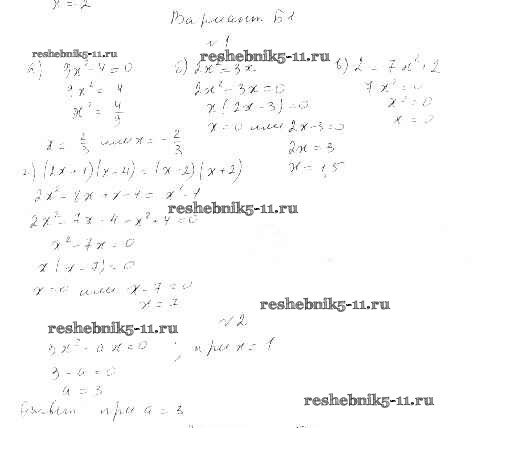 x = -2
Вариант Б1
№1
reshebnik5-11.ru
reshebnik5-11.ru
а) 9x² - 4 = 0
9x² = 4
x² = 4/9
x = 2/3 или x = -2/3
б) 2x² = 3x
2x² - 3x = 0
x(2x - 3) = 0
x = 0 или 2x - 3 = 0
2x = 3
x = 1,5
в) 2 = 7x² + 2
7x² = 0
x² = 0
x = 0
г) (2x + 1)(x - 4) = (x - 2)(x + 2)
2x² - 8x + x - 4 = x² - 4
reshebnik5-11.ru
2x² - 7x - 4 - x² + 4 = 0
x² - 7x = 0
x(x - 7) = 0
x = 0 или x - 7 = 0
x = 7
reshebnik5-11.ru
№2
reshebnik5-11.ru
3x² - ax = 0 ; при x = 1
3 - a = 0
a = 3
reshebnik5-11.ru
Ответ при a = 3